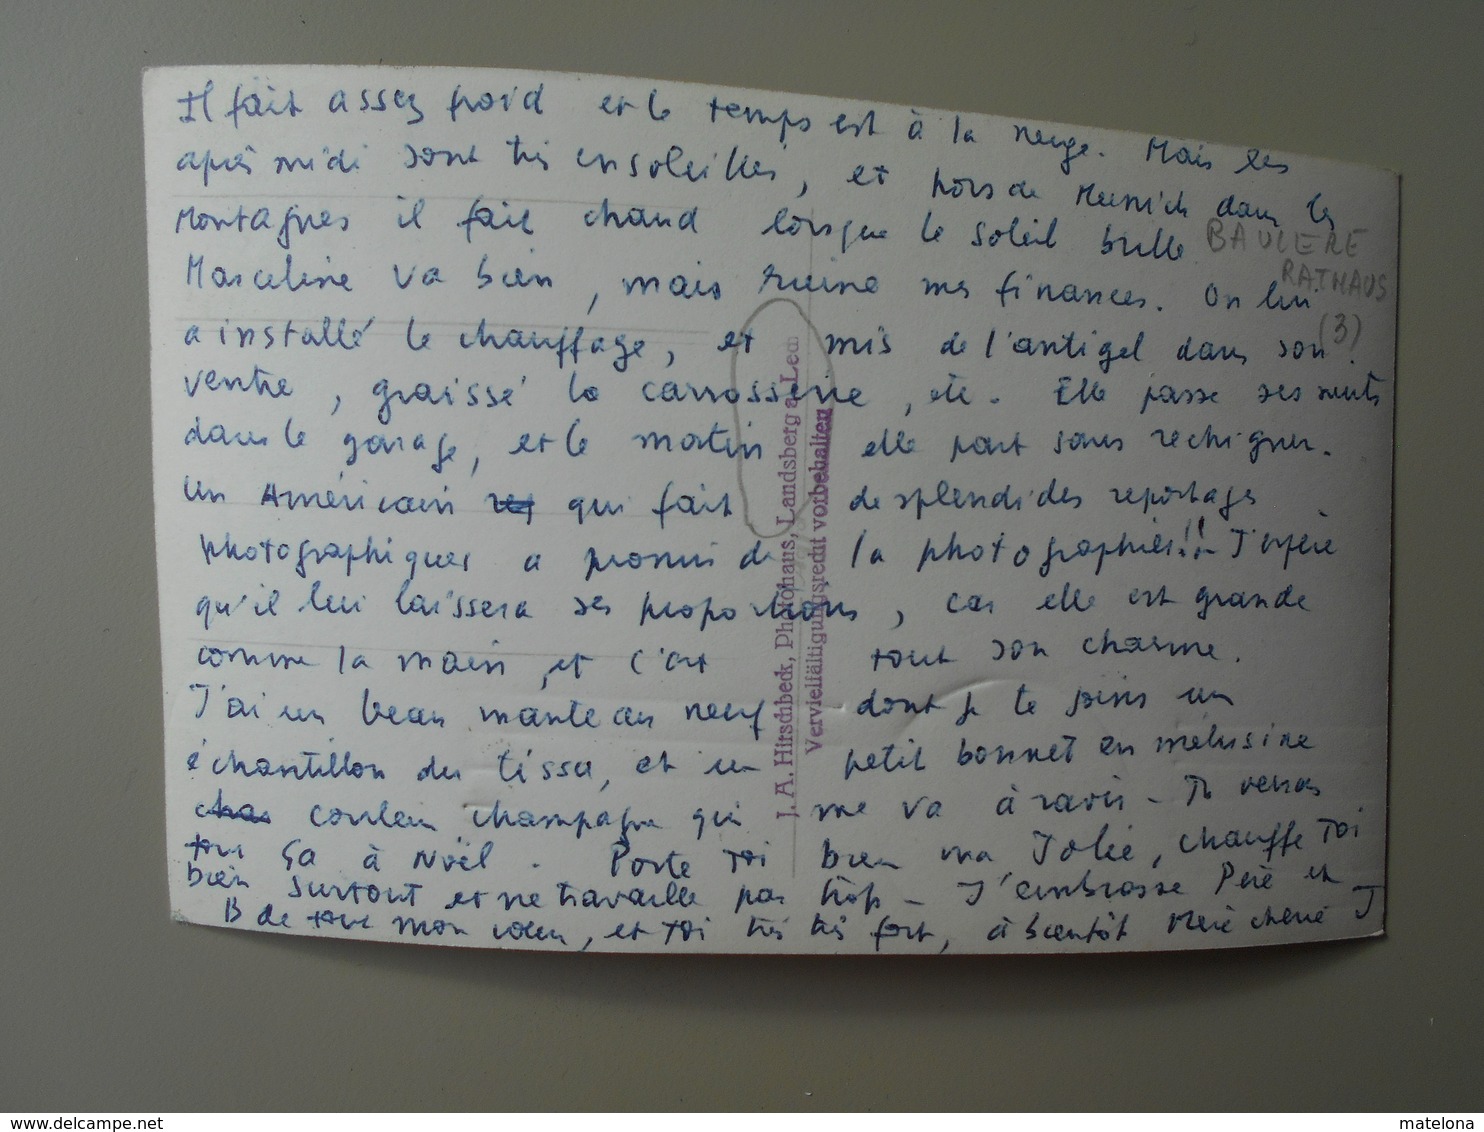 Il fait assez froid et le temps est à la neige. Mais les
après midi sont très ensoleillés, et hors de Munich dans les
Montagnes il fait chaud lorsque le soleil brille
Masceline va bien, mais ruine mes finances. On lui
a installé le chauffage, et mis de l'antigel dans son
ventre, graissé la carrosserie, etc. Elle passe ses nuits
dans le garage, et le matin elle part sans rechigner.
Un Américain qui fait de splendides reportages
photographiques a promis de la photographier!! J'espère
qu'il lui laissera ses proportions, car elle est grande
comme la main, et c'est tout son charme.
J'ai un beau manteau neuf dont je te joins un
échantillon du tissu, et un petit bonnet en mélusine
couleur champagne qui me va à ravir - Tu verras
tout ça à Noël. Porte toi bien ma Jolie, chauffe toi
bien surtout et ne travaille pas trop - J'embrasse Père et
B de tout mon cœur, et toi très très fort, à bientôt Mère chérie J
BAVIERE
RATHAUS
(3)
J. A. Hirschbeck, Photohaus, Landsberg a. Lech
Vervielfältigungsrecht vorbehalten
matelona
www.delcampe.net